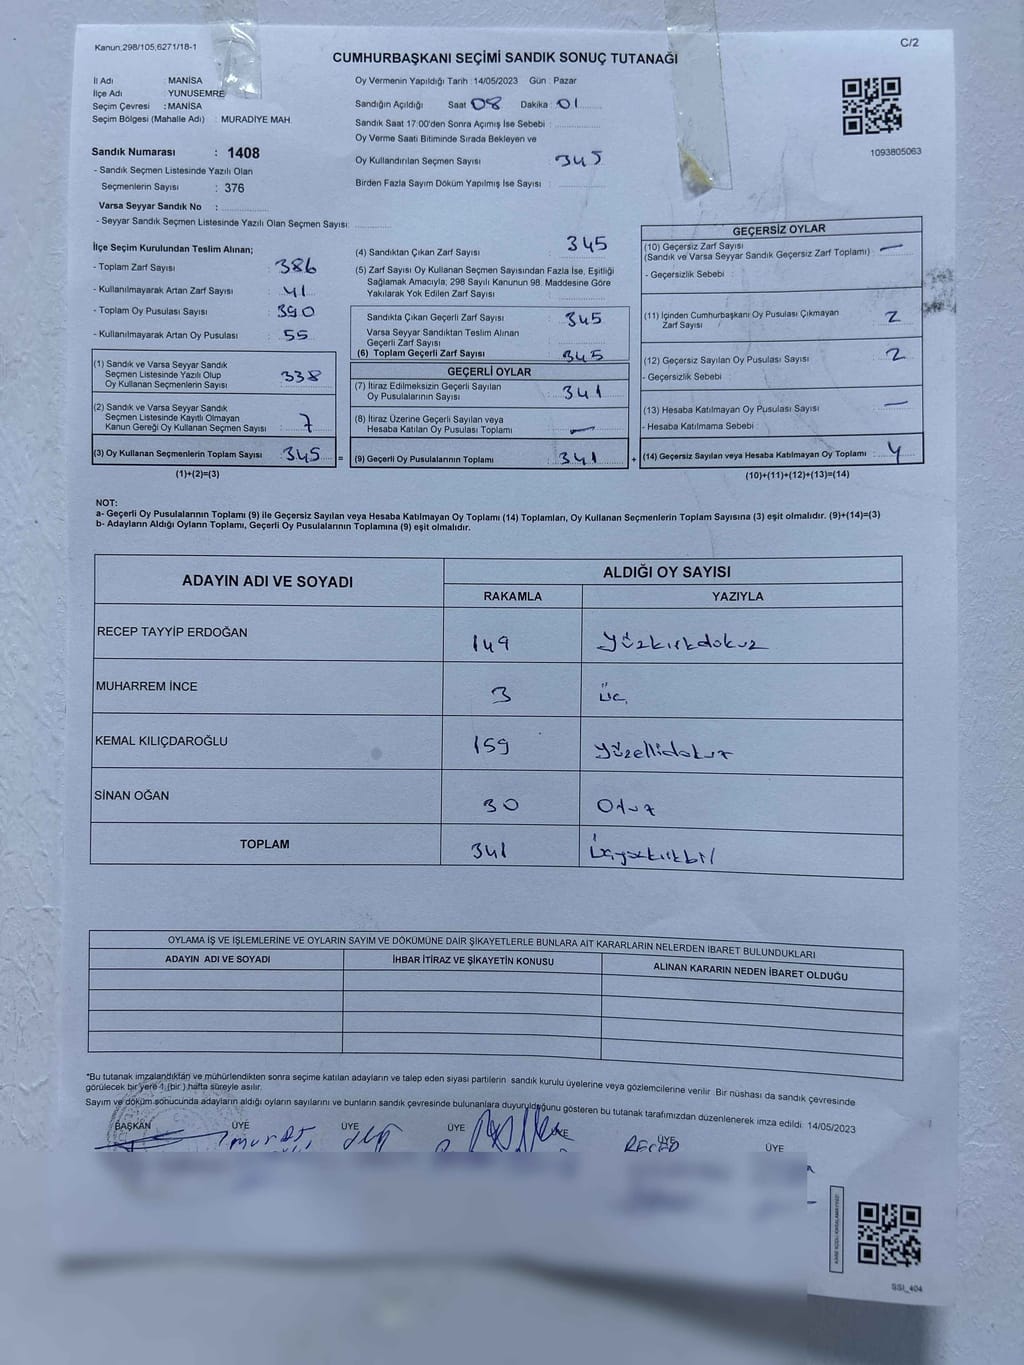 Kanun;298/105,6271/18-1
C/2
CUMHURBAŞKANI SEÇİMİ SANDIK SONUÇ TUTANAĞI
İl Adı : MANİSA
İlçe Adı : YUNUSEMRE
Seçim Çevresi : MANİSA
Seçim Bölgesi (Mahalle Adı) : MURADİYE MAH.
Oy Vermenin Yapıldığı Tarih : 14/05/2023 Gün : Pazar
Sandığın Açıldığı Saat 08 Dakika : 01
Sandık Saat 17:00'den Sonra Açımış İse Sebebi :
Oy Verme Saati Bitiminde Sırada Bekleyen ve
Oy Kullandırılan Seçmen Sayısı : 345
Birden Fazla Sayım Döküm Yapılmış İse Sayısı :
1093805063
Sandık Numarası : 1408
- Sandık Seçmen Listesinde Yazılı Olan
Seçmenlerin Sayısı : 376
Varsa Seyyar Sandık No :
- Seyyar Sandık Seçmen Listesinde Yazılı Olan Seçmen Sayısı :
İlçe Seçim Kurulundan Teslim Alınan;
- Toplam Zarf Sayısı : 386
- Kullanılmayarak Artan Zarf Sayısı : 41
- Toplam Oy Pusulası Sayısı : 390
- Kullanılmayarak Artan Oy Pusulası : 55
(1) Sandık ve Varsa Seyyar Sandık
Seçmen Listesinde Yazılı Olup
Oy Kullanan Seçmenlerin Sayısı : 338
(2) Sandık ve Varsa Seyyar Sandık
Seçmen Listesinde Kayıtlı Olmayan
Kanun Gereği Oy Kullanan Seçmen Sayısı : 7
(3) Oy Kullanan Seçmenlerin Toplam Sayısı : 345
(1)+(2)=(3)
(4) Sandıktan Çıkan Zarf Sayısı : 345
(5) Zarf Sayısı Oy Kullanan Seçmen Sayısından Fazla İse, Eşitliği
Sağlamak Amacıyla; 298 Sayılı Kanunun 98. Maddesine Göre
Yakılarak Yok Edilen Zarf Sayısı :
Sandıkta Çıkan Geçerli Zarf Sayısı : 345
Varsa Seyyar Sandıktan Teslim Alınan
Geçerli Zarf Sayısı :
(6) Toplam Geçerli Zarf Sayısı : 345
GEÇERLİ OYLAR
(7) İtiraz Edilmeksizin Geçerli Sayılan
Oy Pusulalarının Sayısı : 341
(8) İtiraz Üzerine Geçerli Sayılan veya
Hesaba Katılan Oy Pusulası Toplamı : —
= (9) Geçerli Oy Pusulalarının Toplamı : 341
GEÇERSİZ OYLAR
(10) Geçersiz Zarf Sayısı : —
(Sandık ve Varsa Seyyar Sandık Geçersiz Zarf Toplamı)
- Geçersizlik Sebebi :
(11) İçinden Cumhurbaşkanı Oy Pusulası Çıkmayan
Zarf Sayısı : 2
(12) Geçersiz Sayılan Oy Pusulası Sayısı : 2
- Geçersizlik Sebebi :
(13) Hesaba Katılmayan Oy Pusulası Sayısı : —
- Hesaba Katılmama Sebebi :
+ (14) Geçersiz Sayılan veya Hesaba Katılmayan Oy Toplamı : 4
(10)+(11)+(12)+(13)=(14)
NOT:
a- Geçerli Oy Pusulalarının Toplamı (9) ile Geçersiz Sayılan veya Hesaba Katılmayan Oy Toplamı (14) Toplamları, Oy Kullanan Seçmenlerin Toplam Sayısına (3) eşit olmalıdır. (9)+(14)=(3)
b- Adayların Aldığı Oyların Toplamı, Geçerli Oy Pusulalarının Toplamına (9) eşit olmalıdır.
ADAYIN ADI VE SOYADI
ALDIĞI OY SAYISI
RAKAMLA YAZIYLA
RECEP TAYYİP ERDOĞAN 149 Yüzkırkdokuz
MUHARREM İNCE 3 üç
KEMAL KILIÇDAROĞLU 159 Yüzellidokuz
SİNAN OĞAN 30 Otuz
TOPLAM 341 Üçyüzkırkbir
OYLAMA İŞ VE İŞLEMLERİNE VE OYLARIN SAYIM VE DÖKÜMÜNE DAİR ŞİKAYETLERLE BUNLARA AİT KARARLARIN NELERDEN İBARET BULUNDUKLARI
ADAYIN ADI VE SOYADI İHBAR İTİRAZ VE ŞİKAYETİN KONUSU ALINAN KARARIN NEDEN İBARET OLDUĞU
*Bu tutanak imzalandıktan ve mühürlendikten sonra seçime katılan adayların ve talep eden siyasi partilerin sandık kurulu üyelerine veya gözlemcilerine verilir. Bir nüshası da sandık çevresinde
görülecek bir yere 1 (bir ) hafta süreyle asılır.
Sayım ve döküm sonucunda adayların aldığı oyların sayılarını ve bunların sandık çevresinde bulunanlara duyurulduğunu gösteren bu tutanak tarafımızdan düzenlenerek imza edildi. 14/05/2023
BAŞKAN ÜYE ÜYE ÜYE ÜYE ÜYE ÜYE
RECEP
SSI_404